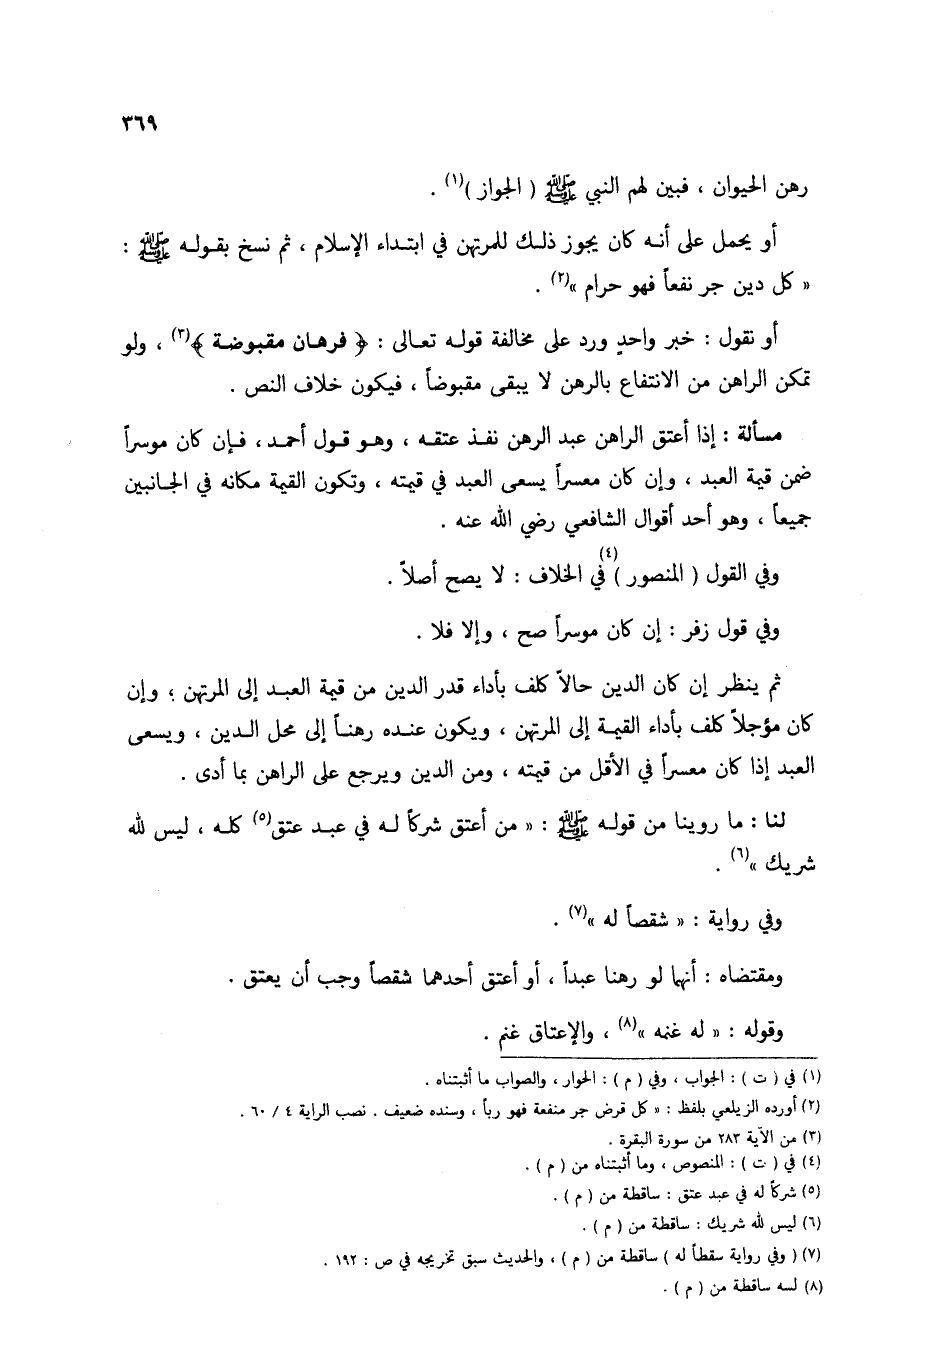 ٣٦٩
رهن الحيوان ، فبين لهم النبي ﷺ ( الجواز )(١) .
أو يحمل على أنه كان يجوز ذلك للمرتهن في ابتداء الإسلام ، ثم نسخ بقوله ﷺ :
« كل دين جر نفعاً فهو حرام »(٢) .
أو نقول : خبر واحدٍ ورد على مخالفة قوله تعالى : ﴿ فرهان مقبوضة ﴾(٣) ، ولو
تمكن الراهن من الانتفاع بالرهن لا يبقى مقبوضاً ، فيكون خلاف النص .
مسألة : إذا أعتق الراهن عبد الرهن نفذ عتقه ، وهو قول أحمد ، فإن كان موسراً
ضمن قيمة العبد ، وإن كان معسراً يسعى العبد في قيمته ، وتكون القيمة مكانه في الجانبين
جميعاً ، وهو أحد أقوال الشافعي رضي الله عنه .
وفي القول ( المنصور )(٤) في الخلاف : لا يصح أصلاً .
وفي قول زفر : إن كان موسراً صح ، وإلا فلا .
ثم ينظر إن كان الدين حالاً كلف بأداء قدر الدين من قيمة العبد إلى المرتهن ؛ وإن
كان مؤجلاً كلف بأداء القيمة إلى المرتهن ، ويكون عنده رهناً إلى محل الدين ، ويسعى
العبد إذا كان معسراً في الأقل من قيمته ، ومن الدين ويرجع على الراهن بما أدى .
لنا : ما روينا من قوله ﷺ : « من أعتق شركاً له في عبد عتق(٥) كله ، ليس لله
شريك »(٦) .
وفي رواية : « شقصاً له »(٧) .
ومقتضاه : أنهما لو رهنا عبداً ، أو أعتق أحدهما شقصاً وجب أن يعتق .
وقوله : « له غنمه »(٨) ، والإعتاق غنم .
(١) في ( ت ) : الجواب ، وفي ( م ) : الحوار ، والصواب ما أثبتناه .
(٢) أورده الزيلعي بلفظ : « كل قرض جر منفعة فهو رباً ، وسنده ضعيف . نصب الراية ٤ / ٦٠ .
(٣) من الآية ٢٨٣ من سورة البقرة .
(٤) في ( ت ) : المنصوص ، وما أثبتناه من ( م ) .
(٥) شركاً له في عبد عتق : ساقطة من ( م ) .
(٦) ليس لله شريك : ساقطة من ( م ) .
(٧) ( وفي رواية سقطاً له ) ساقطة من ( م ) ، والحديث سبق تخريجه في ص : ١٩٢ .
(٨) لسه ساقطة من ( م ) .